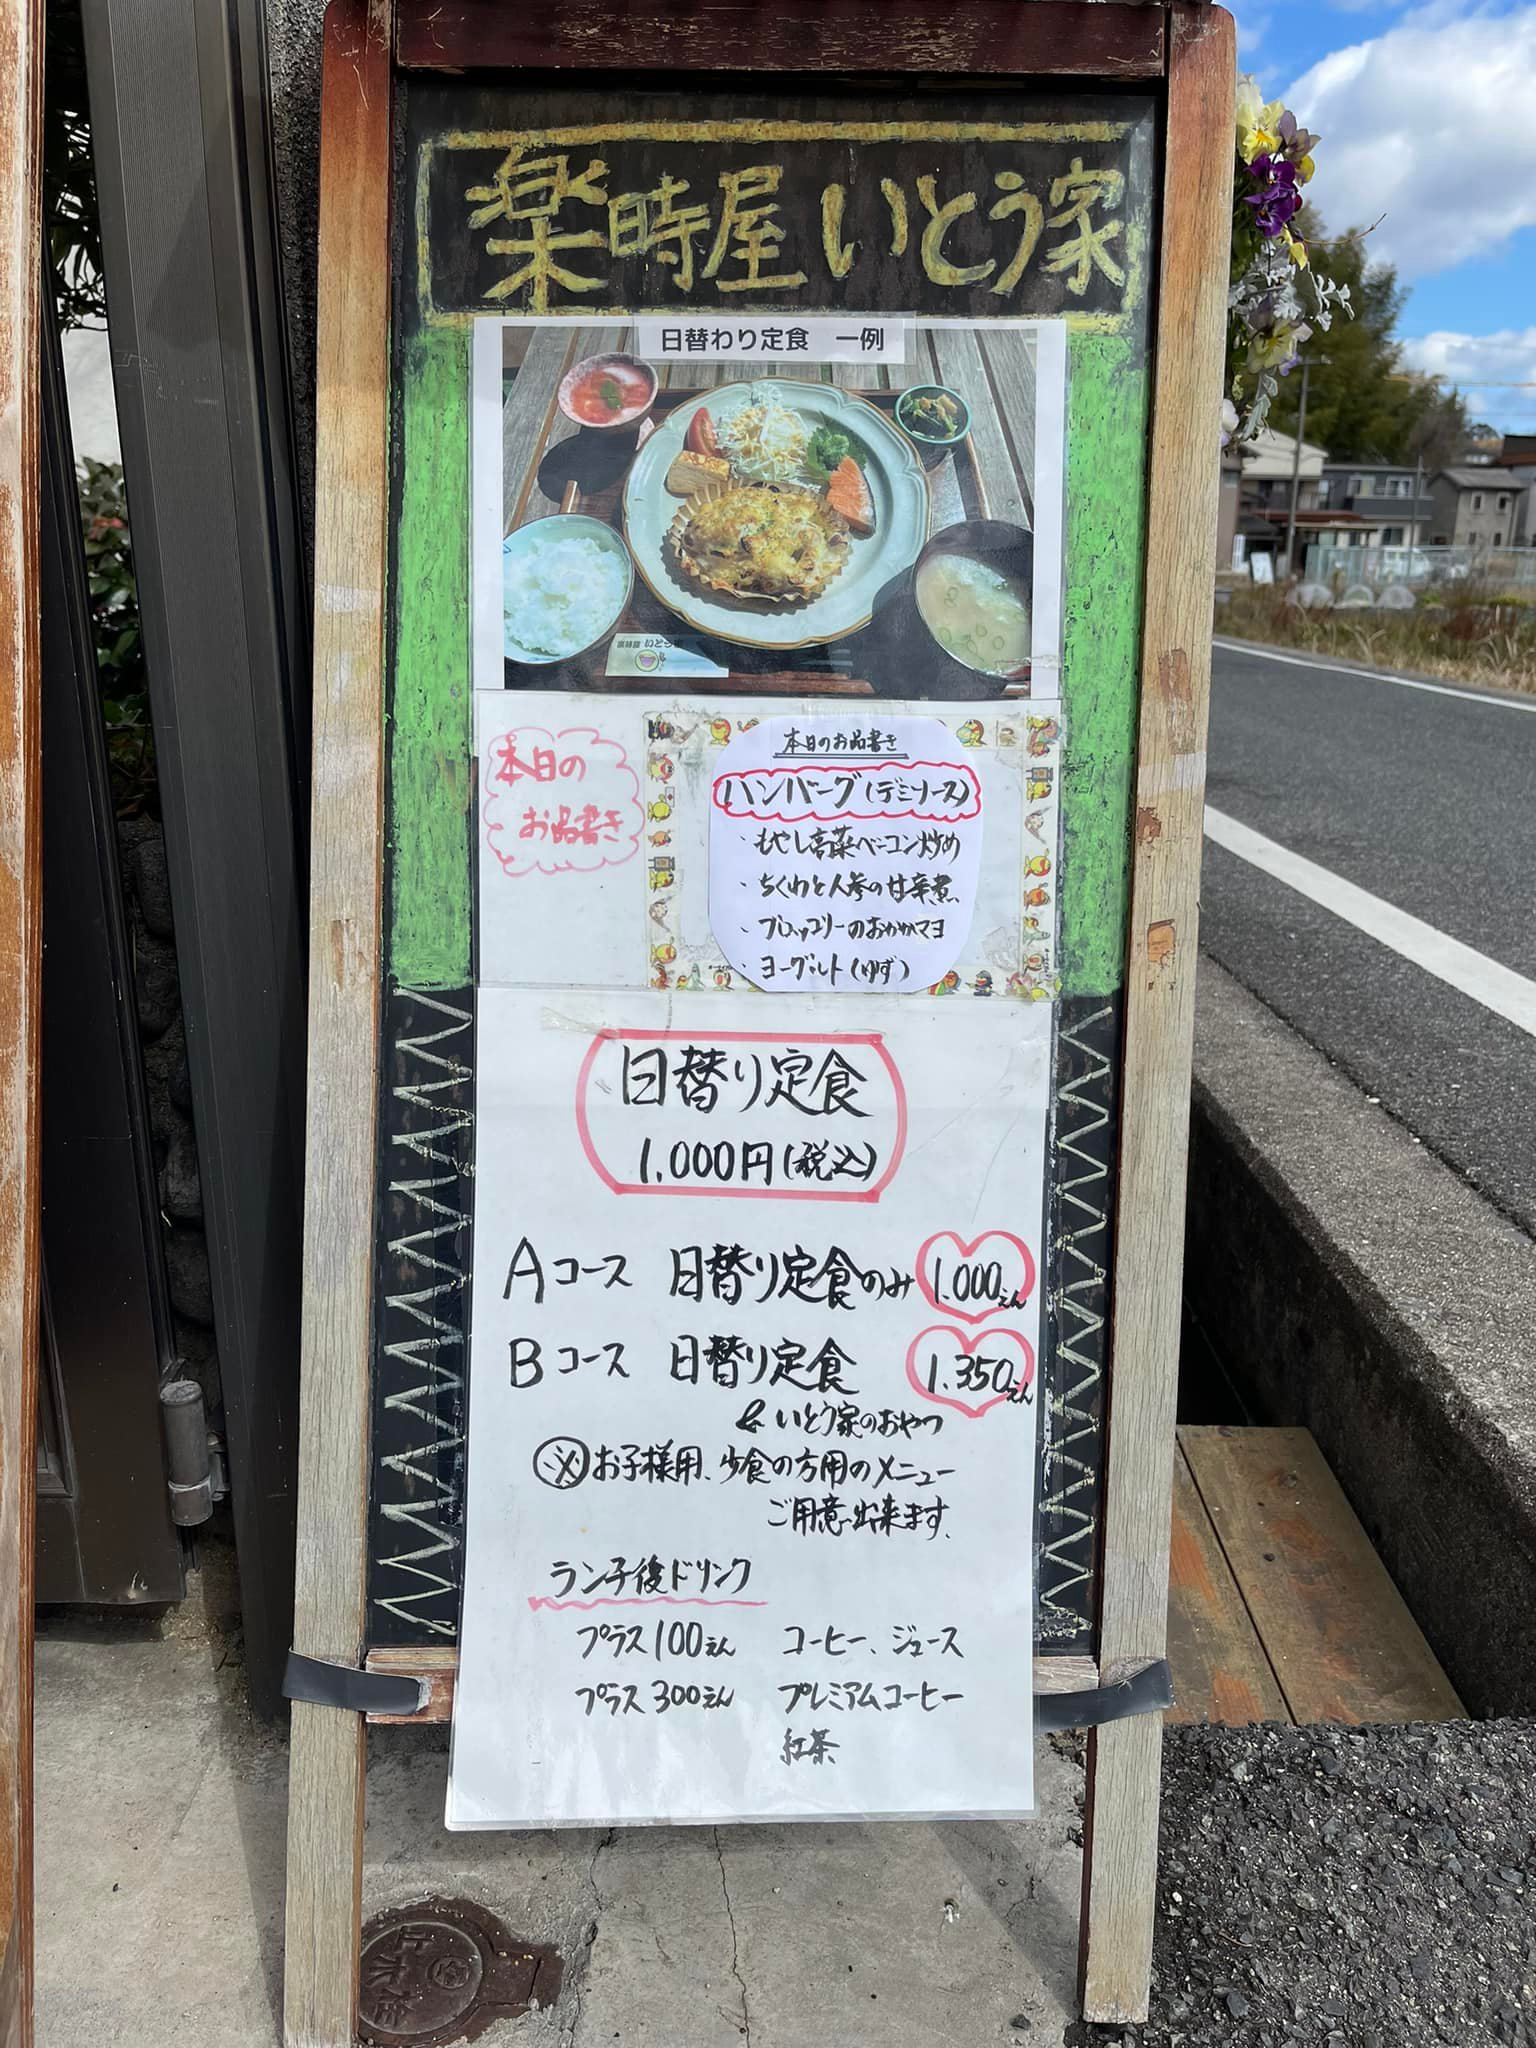 楽時屋 いとう家
日替わり定食 一例
楽時屋 いとう家
本日の
お品書き
本日のお品書き
ハンバーグ(デミソース)
・もやし高菜ベーコン炒め
・ちくわと人参の甘辛煮
・ブロッコリーのおかかマヨ
・ヨーグルト(ゆず)
日替り定食
1,000円(税込)
Aコース 日替り定食のみ 1.000えん
Bコース 日替り定食 1.350えん
& いとう家のおやつ
※お子様用、少食の方用のメニュー
ご用意出来ます。
ランチ後ドリンク
プラス100えん コーヒー、ジュース
プラス300えん プレミアムコーヒー
紅茶